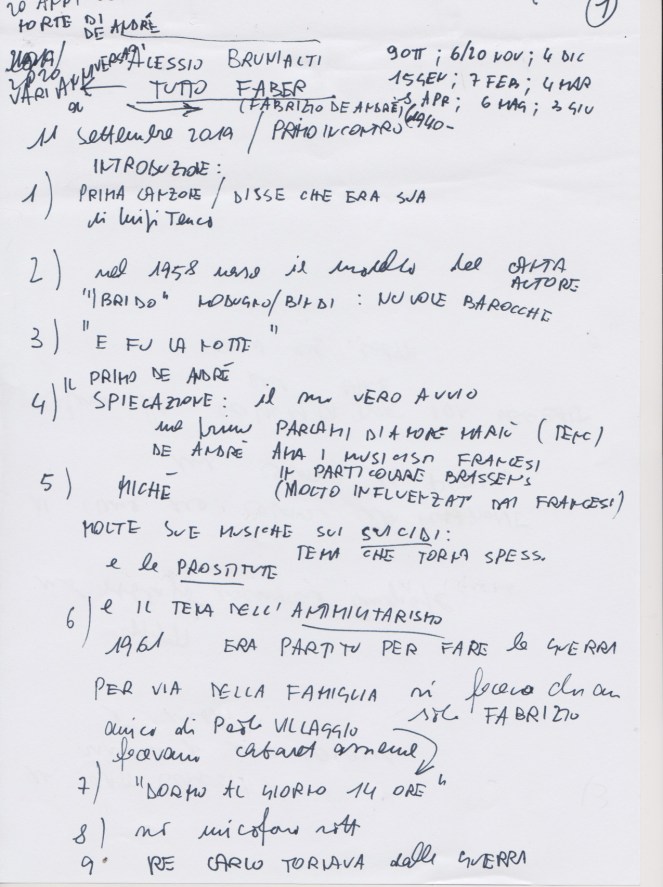 (1)
MORTE DI
DE ANDRÉ
ALESSIO BRUNIALTI
9 OTT ; 6/20 NOV ; 4 DIC
VARI ANNIVERSARI
TUTTO FABER
15 GEN ; 7 FEB ; 4 MAR
(FABRIZIO DE ANDRÈ)
APR ; 6 MAG ; 3 GIU
1940-
11 settembre 2019 / PRIMO INCONTRO
INTRODUZIONE :
1) PRIMA CANZONE / DISSE CHE ERA SUA
di Luigi Tenco
2) nel 1958 nasce il modello del CANTA
AUTORE
"IBRIDO" MODUGNO/BINDI : NUVOLE BAROCCHE
3) "E FU LA NOTTE"
IL PRIMO DE ANDRÉ
4) SPIEGAZIONE : il suo VERO AVVIO
PARLAMI D'AMORE MARIÙ (TENC)
DE ANDRÉ AMA I MUSICISTI FRANCESI
IN PARTICOLARE BRASSENS
5) MICHÉ (MOLTO INFLUENZAT DAI FRANCESI)
MOLTE SUE MUSICHE SUI SUICIDI :
TEMA CHE TORNA SPESS.
e le PROSTITUTE
6) e IL TEMA DELL'ANTIMILITARISMO
1961 ERA PARTITO PER FARE la GUERRA
PER VIA DELLA FAMIGLIA si faceva chiam
solo FABRIZIO
amico di Paolo VILLAGGIO
facevano cabaret assieme
7) "DORMO AL GIORNO 14 ORE"
8) microfono rott
9° RE CARLO TORNAVA dalla GUERRA